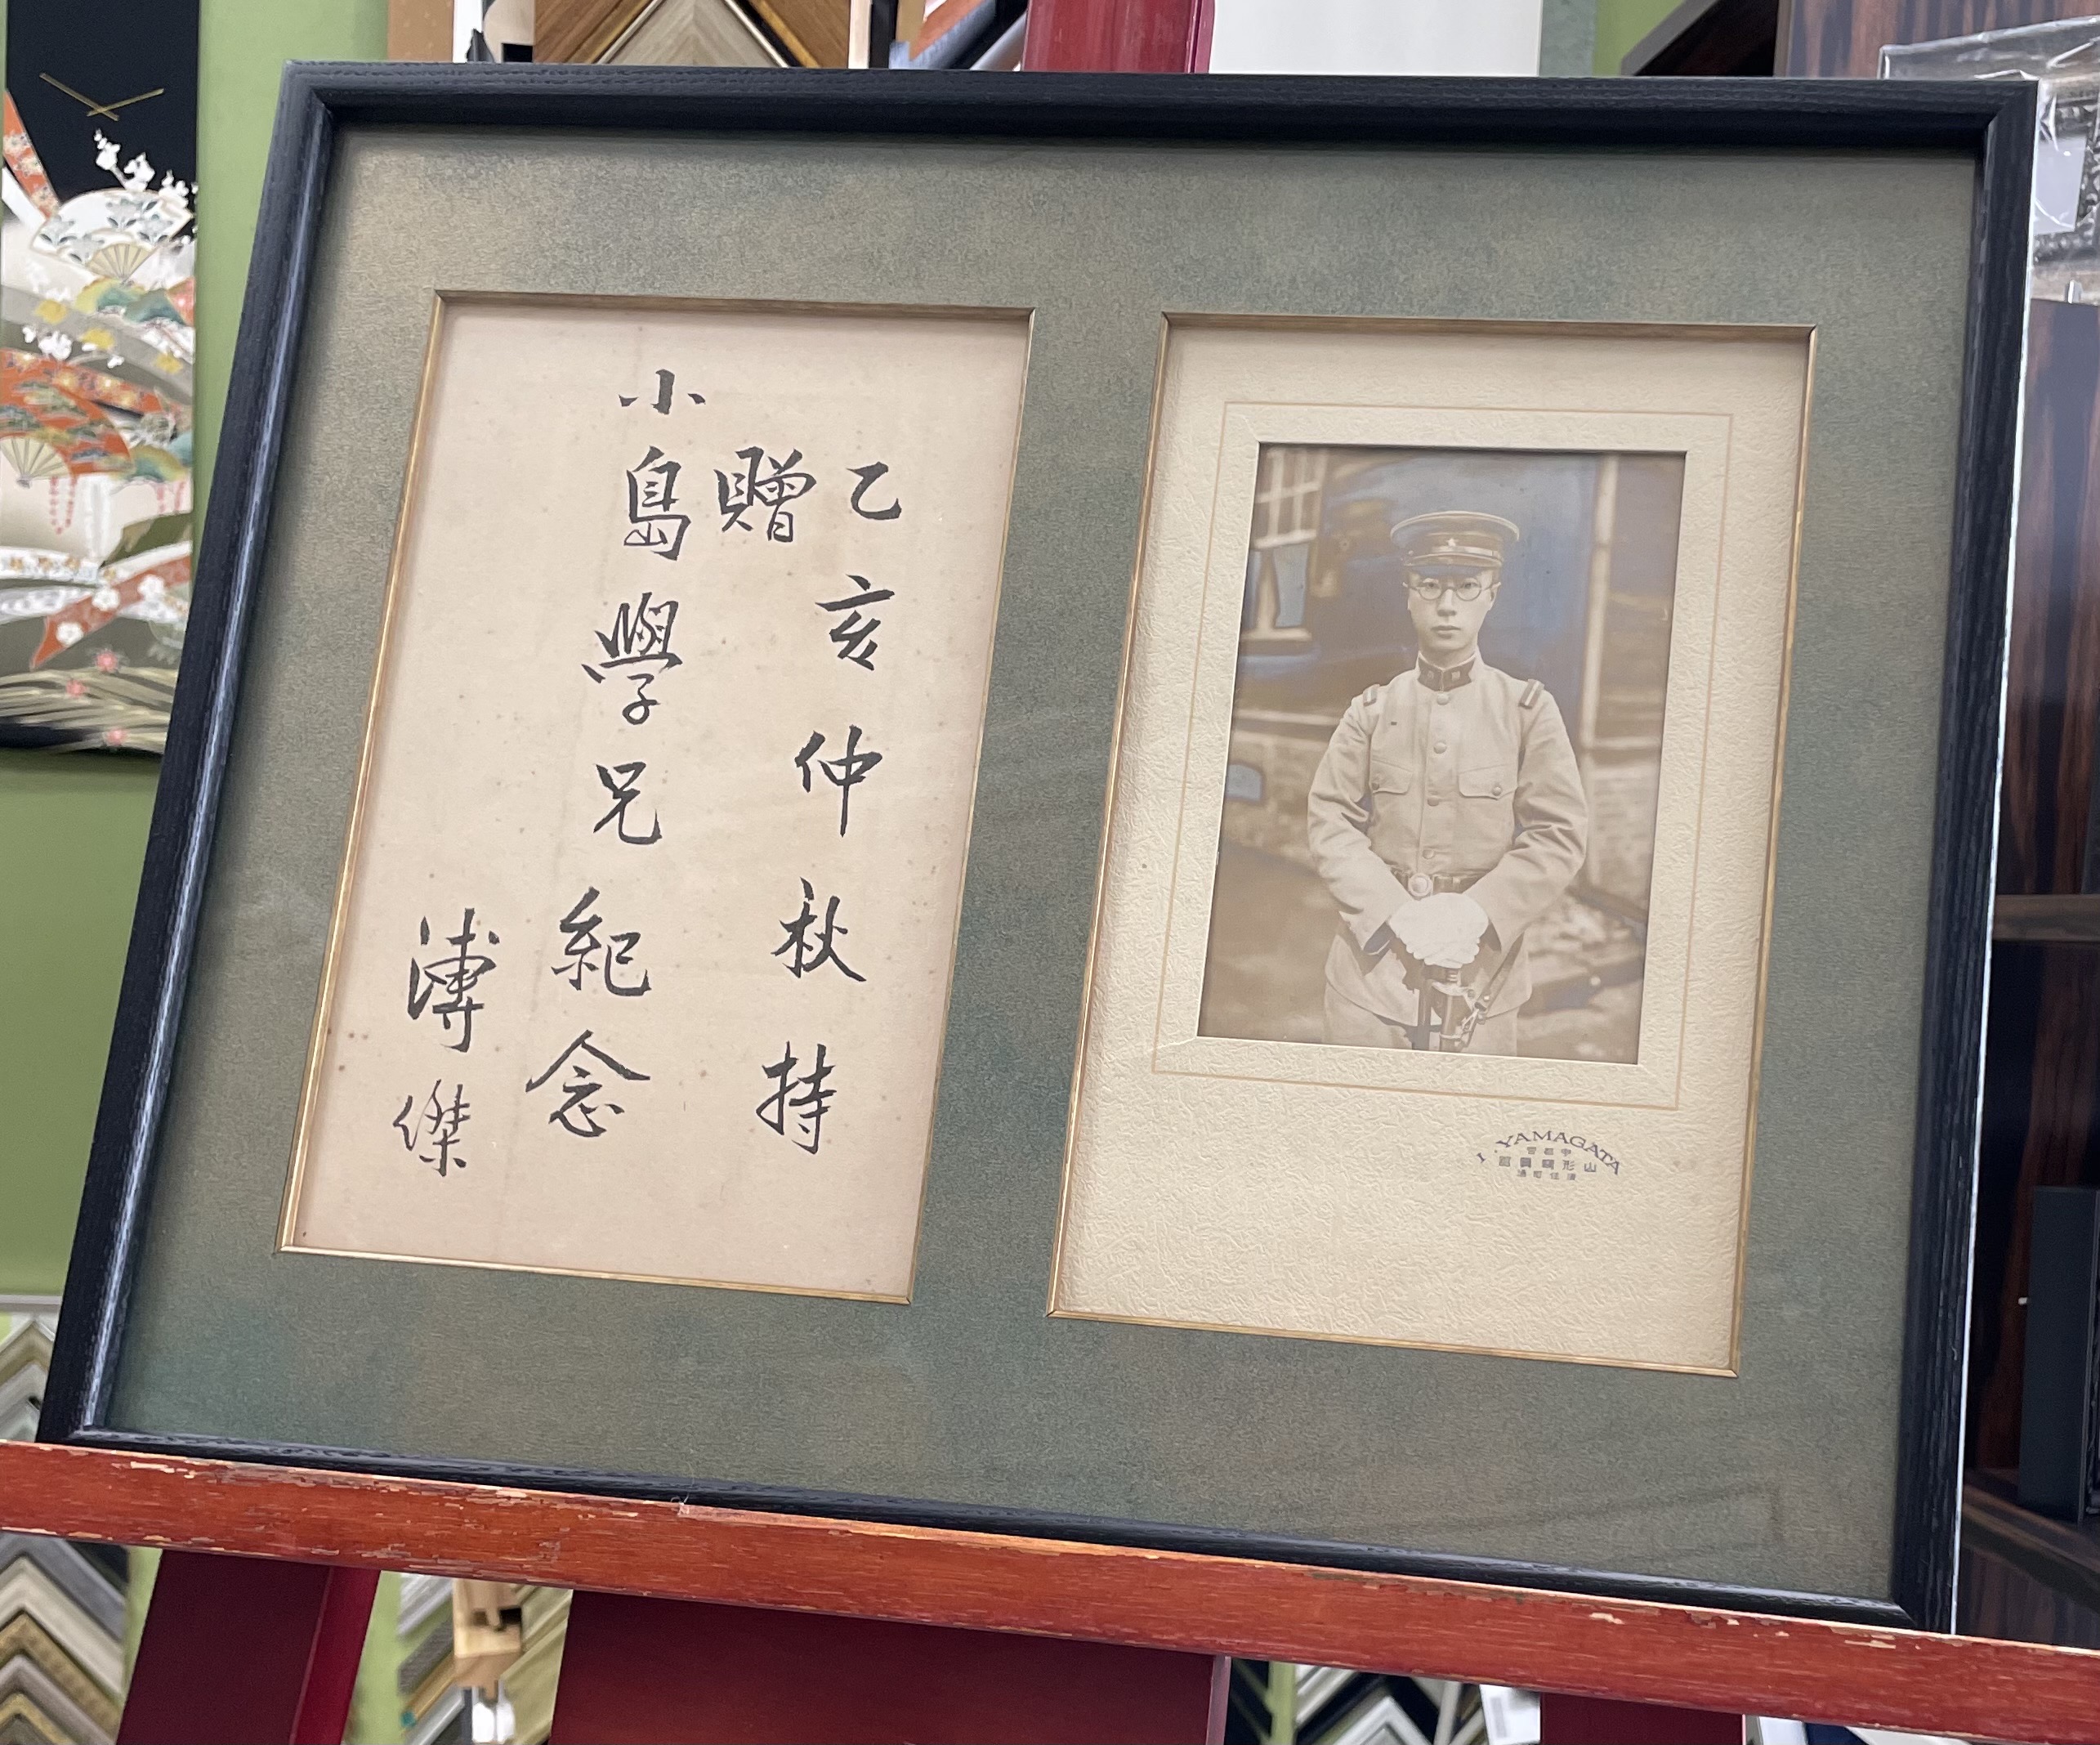 乙亥仲秋持
贈
小島學兄紀念
溥傑
I. YAMAGATA
宇都宮
山形寫眞館